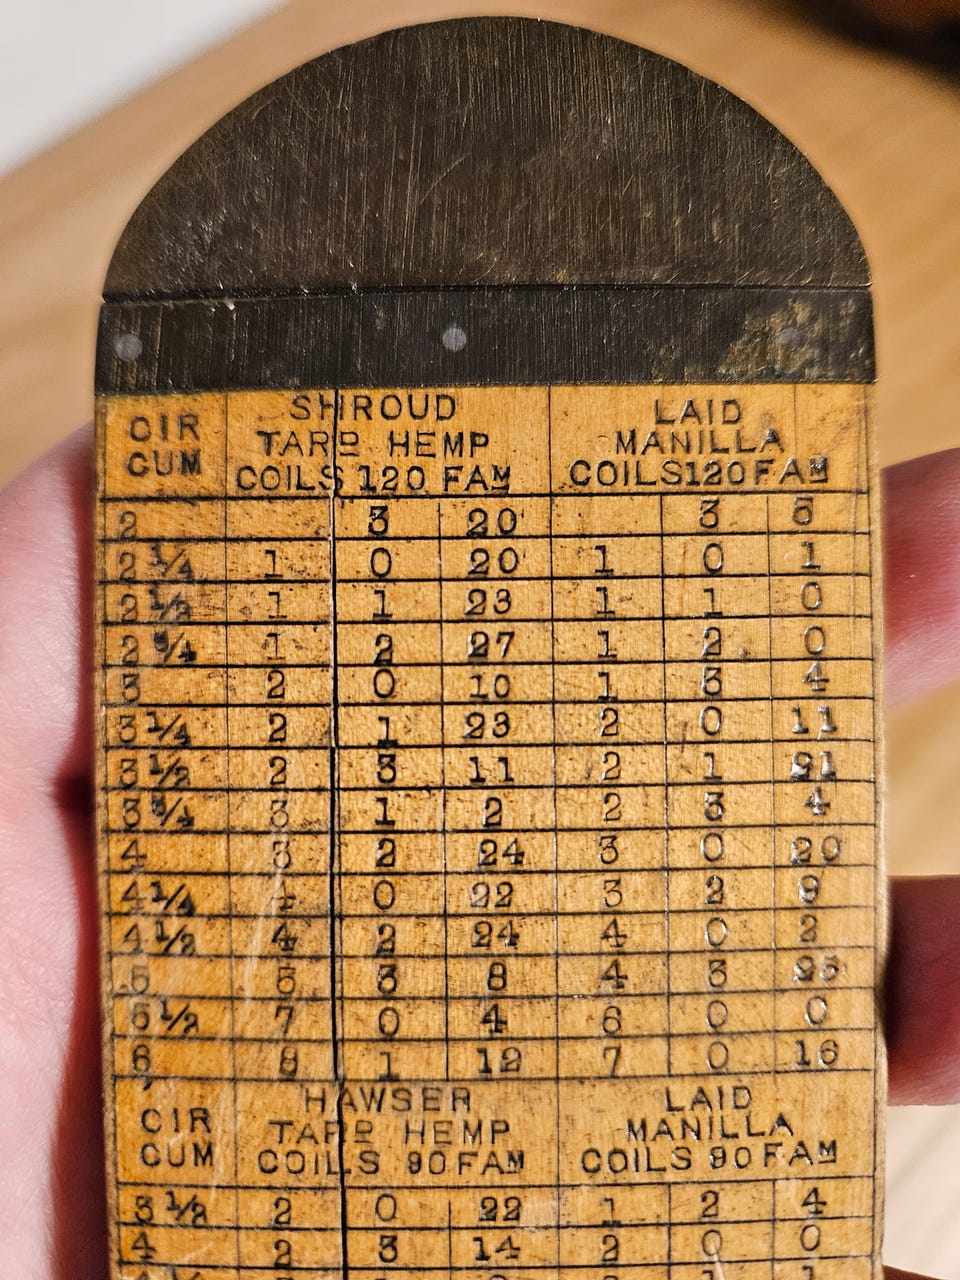 CIR CUM SHROUD TARD HEMP COILS 120 FAM LAID MANILLA COILS 120 FAM
2 3 20 3 5
2 1/4 1 0 20 1 0 1
2 1/2 1 1 23 1 1 0
2 3/4 1 2 27 1 2 0
3 2 0 10 1 3 4
3 1/4 2 1 23 2 0 11
3 1/2 2 3 11 2 1 21
3 3/4 3 1 2 2 3 4
4 3 2 24 3 0 20
4 1/4 4 0 22 3 2 9
4 1/2 4 2 24 4 0 2
5 5 3 8 4 3 25
5 1/2 7 0 4 6 0 0
6 8 1 12 7 0 16
CIR CUM HAWSER TARD HEMP COILS 90 FAM LAID MANILLA COILS 90 FAM
3 1/2 2 0 22 1 2 4
4 2 3 14 2 0 0